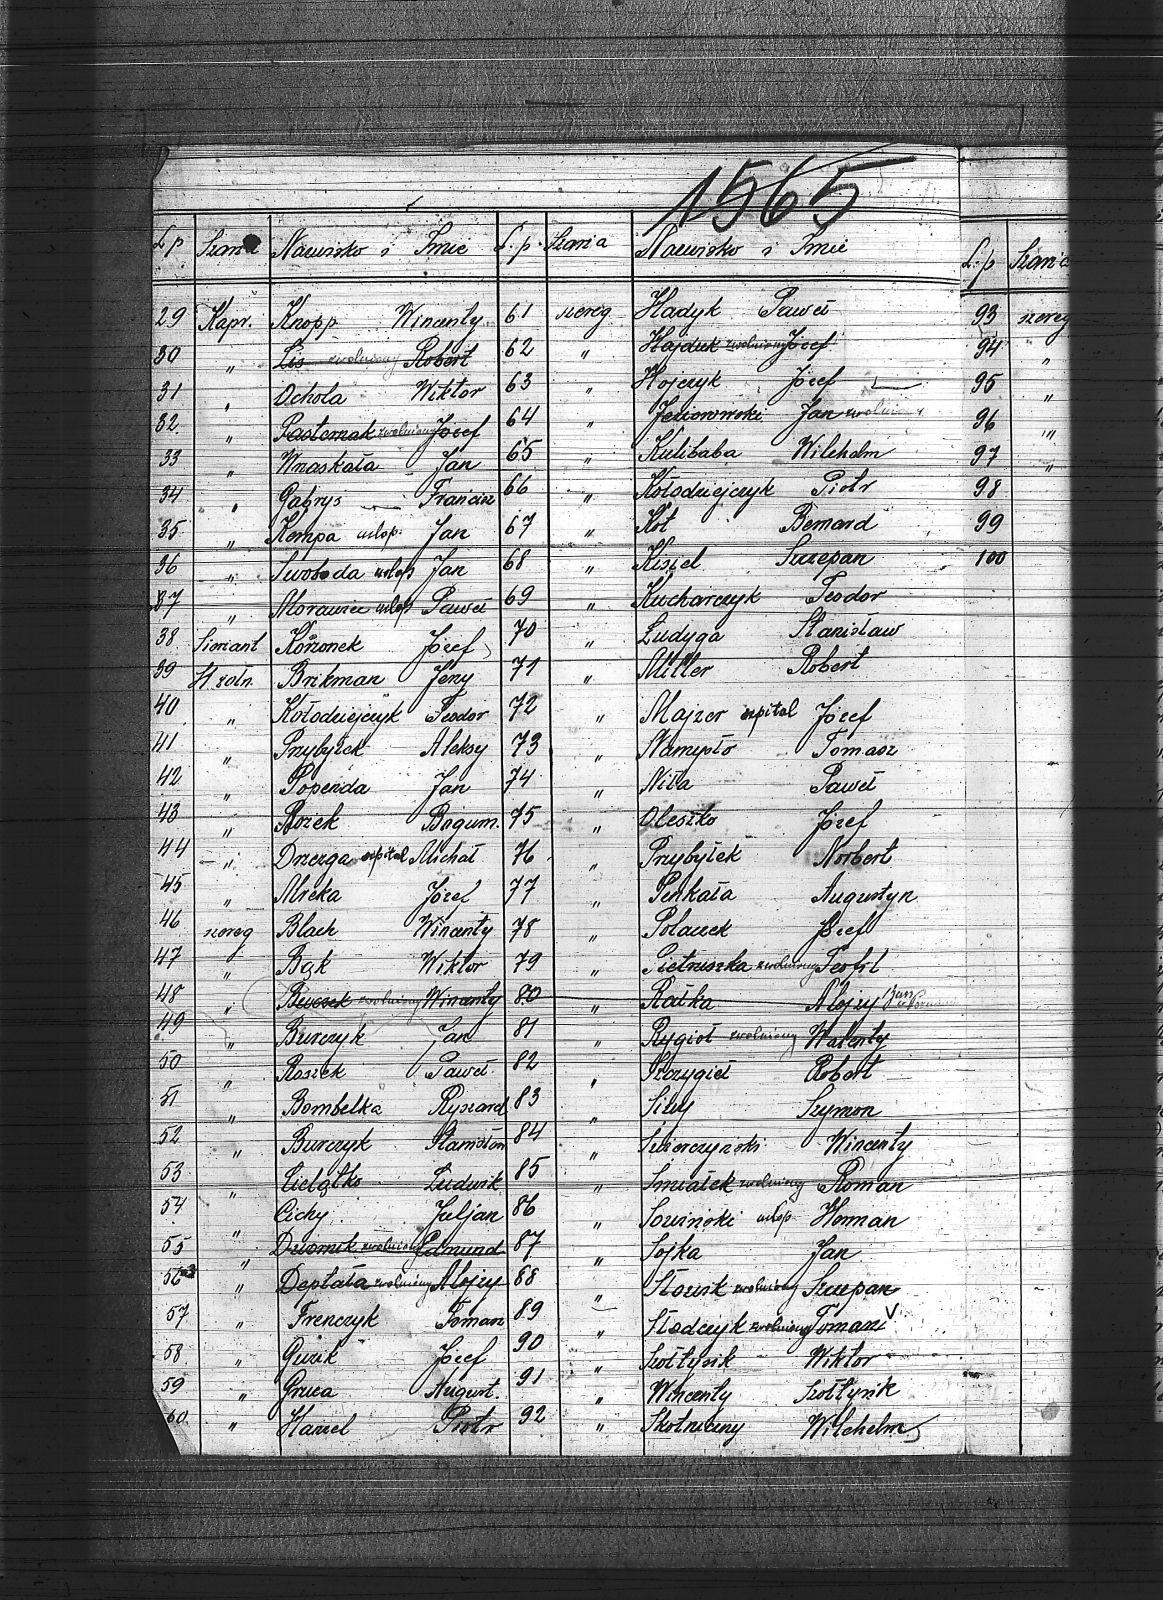 1565
L. p. Szarża Nazwisko i Imie L. p. Szarża Nazwisko i Imie L. p Szarża
29 Kapr. Knopp Wincenty 61 szereg Hadyk Paweł 93 szereg
30 " Lis zwolniony Robert 62 " Hajduk zwolniony Józef 94 "
31 " Ochola Wiktor 63 " Hojczyk Józef 95 "
32. " Pasternak zwolniony Józef 64 " Jeziorowski Jan zwolniony 96 "
33 " Wraskała Jan 65 " Kulibaba Wilehelm 97 "
34 " Gabrys Francisz 66 " Kołodziejczyk Piotr 98
35 " Kempa urlop. Jan 67 " Kot Bernard 99
36 " Swoboda urlop Jan 68 " Kisiel Szczepan 100
37 " Morawiec urlop Paweł 69 " Kucharczyk Teodor
38 Sierżant Korzonek Józef 70 " Ludyga Stanisław
39 St. żołn. Brikman Jerzy 71 " Miller Robert
40 " Kołodziejczyk Teodor 72 " Majzer szpital Józef
41 " Przybyłek Aleksy 73 " Namysło Tomasz
42 " Popenda Jan 74 " Niła Paweł
43 " Rożek Bogum. 75 " Oleszko Józef
44 " Drzezga szpital Michał 76 " Przybyłek Norbert
45 " Mieka Józef 77 " Penkała Augustyn
46 szereg Blach Wincenty 78 " Polaczek Józef
47 " Bąk Wiktor 79 " Pietruszka zwolniony Teofil
48 " zwolniony Wincenty 80 " Ratka Alojzy
49 " Burczyk Jan 81 " Rygioł zwolniony Walenty
50 " Roszek Paweł 82 " Szczygieł Robert
51 " Bombelka Ryszard 83 " Szymon
52 " Burczyk Stanisław 84 " Wincenty
53 " Cielątko Ludwik 85 " Smiałek zwolniony Roman
54 " Cichy Juljan 86 " Sowiński urlop Herman
55 " zwolniony Edmund 87 " Sojka Jan
56 " Deptała zwolniony Alojzy 88 " Słowik zwolniony Szczepan
57 " Frenczyk Tomasz 89 " Słodczyk zwolniony Tomasz V
58 " Guzik Józef 90 " Szołtysik Wiktor
59 " Gruca August. 91 " Wincenty Szołtysik
60 " Haniel Piotr 92 " Skotniczny Wilehelm